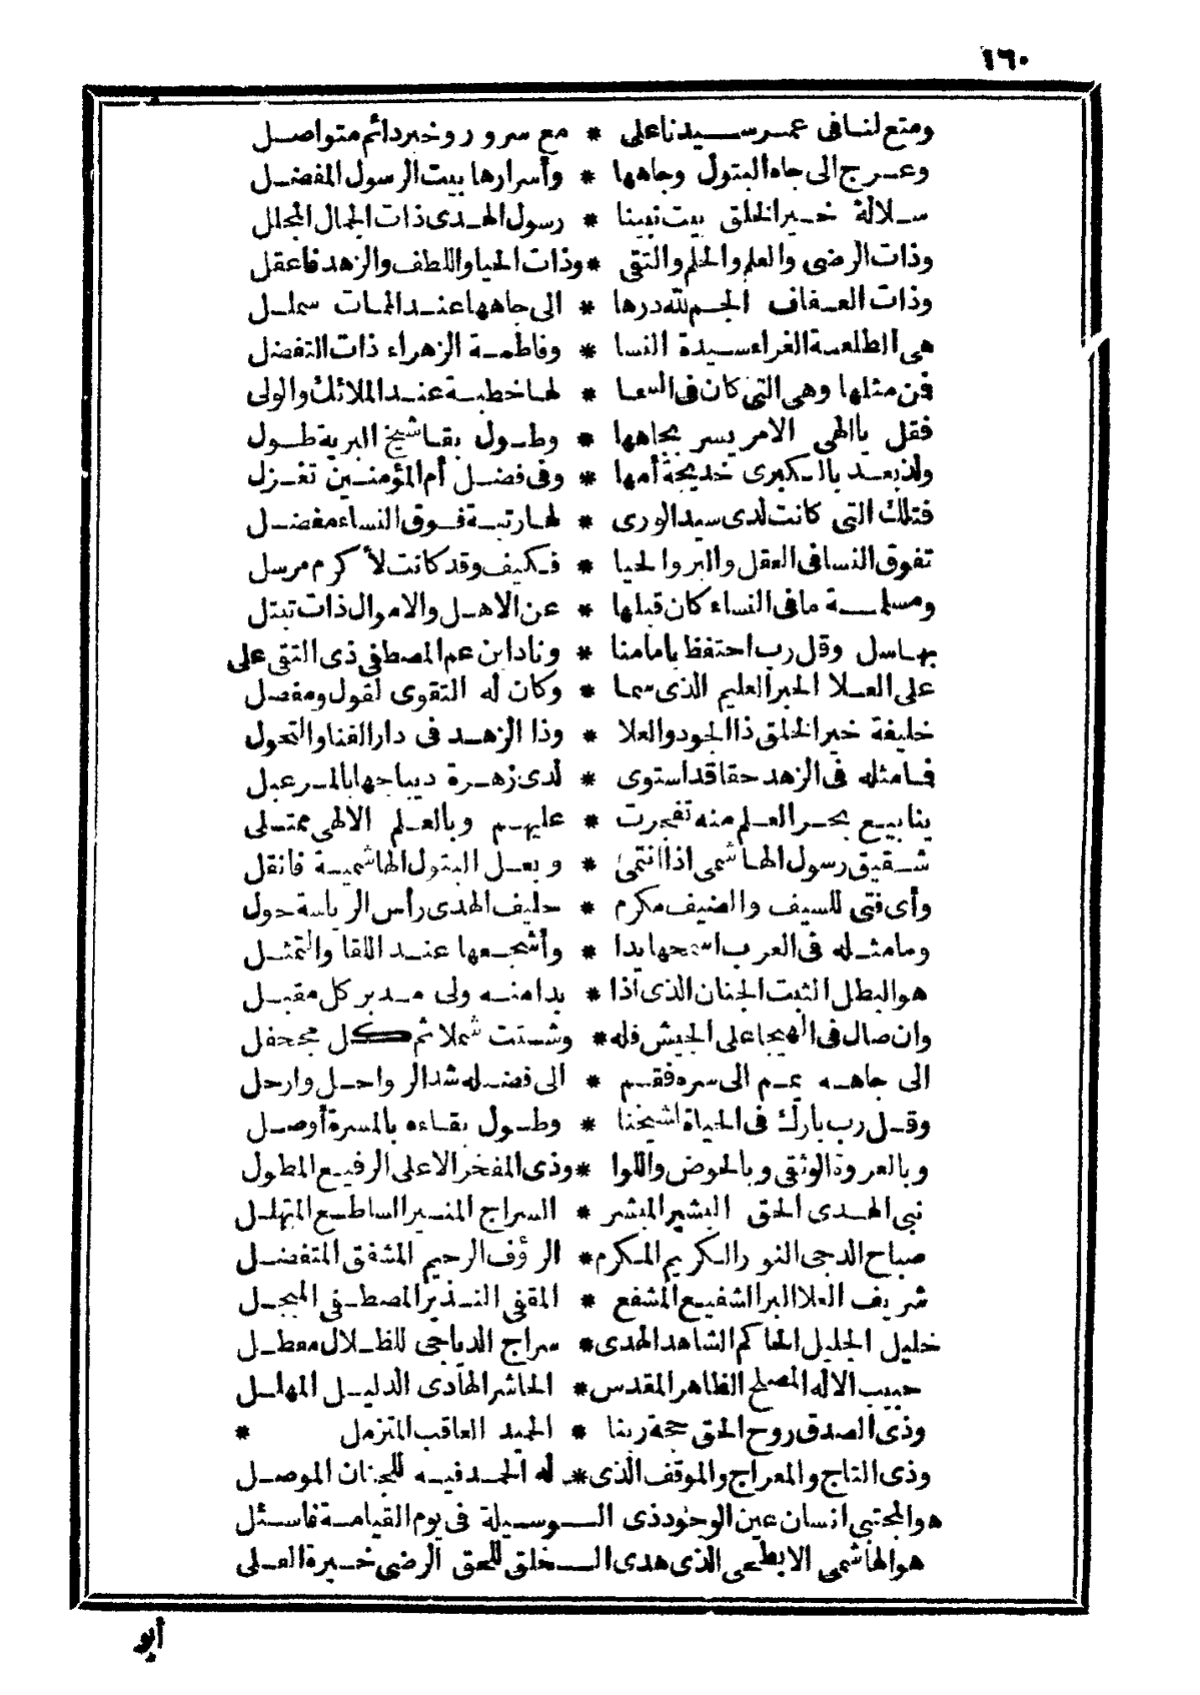 ١٦٠
ومتع لنا فى عمر سيدنا على * مع سرور وخير دائم متواصل
وعرج الى جاه البتول وجاهها * وأسرارها بيت الرسول المفضل
سلالة خير الخلق بيت نبينا * رسول الهدى ذات الجمال المجلل
وذات الرضى والعلم والحلم والتقى * وذات الحيا واللطف والزهد فاعقل
وذات العفاف الجم لله درها * الى جاهها عند الممات سملل
هى الطلعة الغراء سيدة النسا * وفاطمة الزهراء ذات التفضل
فمن مثلها وهى التى كان فى السما * لها خطبة عند الملائك والولى
فقل يا الهى الامر يسر بجاهها * وطول بقا شيخ البرية طول
ولذ بعد بالكبرى خديجة أمها * وفى فضل أم المؤمنين تغزل
فتلك التى كانت لدى سيد الورى * لها رتبة فوق النساء مفضل
تفوق النسا فى العقل والبر والحيا * فكيف وقد كانت لأكرم مرسل
ومسلمة ما فى النساء كان قبلها * عن الاهل والاموال ذات تبتل
بها سل وقل رب احتفظ بامامنا * وناد ابن عم المصطفى ذى التقى على
على العلا الحبر العليم الذى سما * وكان له التقوى لقول ومفصل
خليفة خير الخلق ذا الجود والعلا * وذا الزهد فى دار الفنا والتحول
فما مثله فى الزهد حقا قد استوى * لدى زهرة ديباجها بالمرعبل
ينابيع بحر العلم منه تفجرت * عليهم وبالعلم الالهى ممتلى
شقيق رسول الهاشمى اذا انتمى * وبعل البتول الهاشمية فانقل
وأى فتى للسيف والضيف مكرم * حليف الهدى رأس الرياسة حول
وما مثله فى العرب اسمحها يدا * وأشجعها عند اللقا والتمثل
هو البطل الثبت الجنان الذى اذا * بدا منه ولى مدبر كل مقبل
وان صال فى الهيجا على الجيش فله * وشتت شملا ثم كل مجحفل
الى جاهه عم الى سره فقم * الى فضله شد الرواحل وارحل
وقل رب بارك فى الحياة لشيخنا * وطول بقاءه بالمسرة أوصل
وبالعروة الوثقى وبالحوض واللوا * وذى المفخر الاعلى الرفيع المطول
نبى الهدى الحق البشير المبشر * السراج المنير الساطع المتهلل
صباح الدجى النور الكريم المكرم * الرؤف الرحيم المشفق المتفضل
شريف العلا البر الشفيع المشفع * المقفى النذير المصطفى المبجل
خليل الجليل الحاكم الشاهد الهدى * سراج الدياجى للظلال معطل
حبيب الاله المصلح الطاهر المقدس * الحاشر الهادى الدليل المهلل
وذى الصدق روح الحق حجة ربنا * الحميد العاقب المتزمل *
وذى التاج والمعراج والموقف الذى * له الحمد فيه للجنان الموصل
هو المجتبى انسان عين الوجود ذى الوسيلة فى يوم القيامة فاسئل
هو الهاشمى الابطحى الذى هدى الخلق للحق الرضى خيرة العلى
أبو